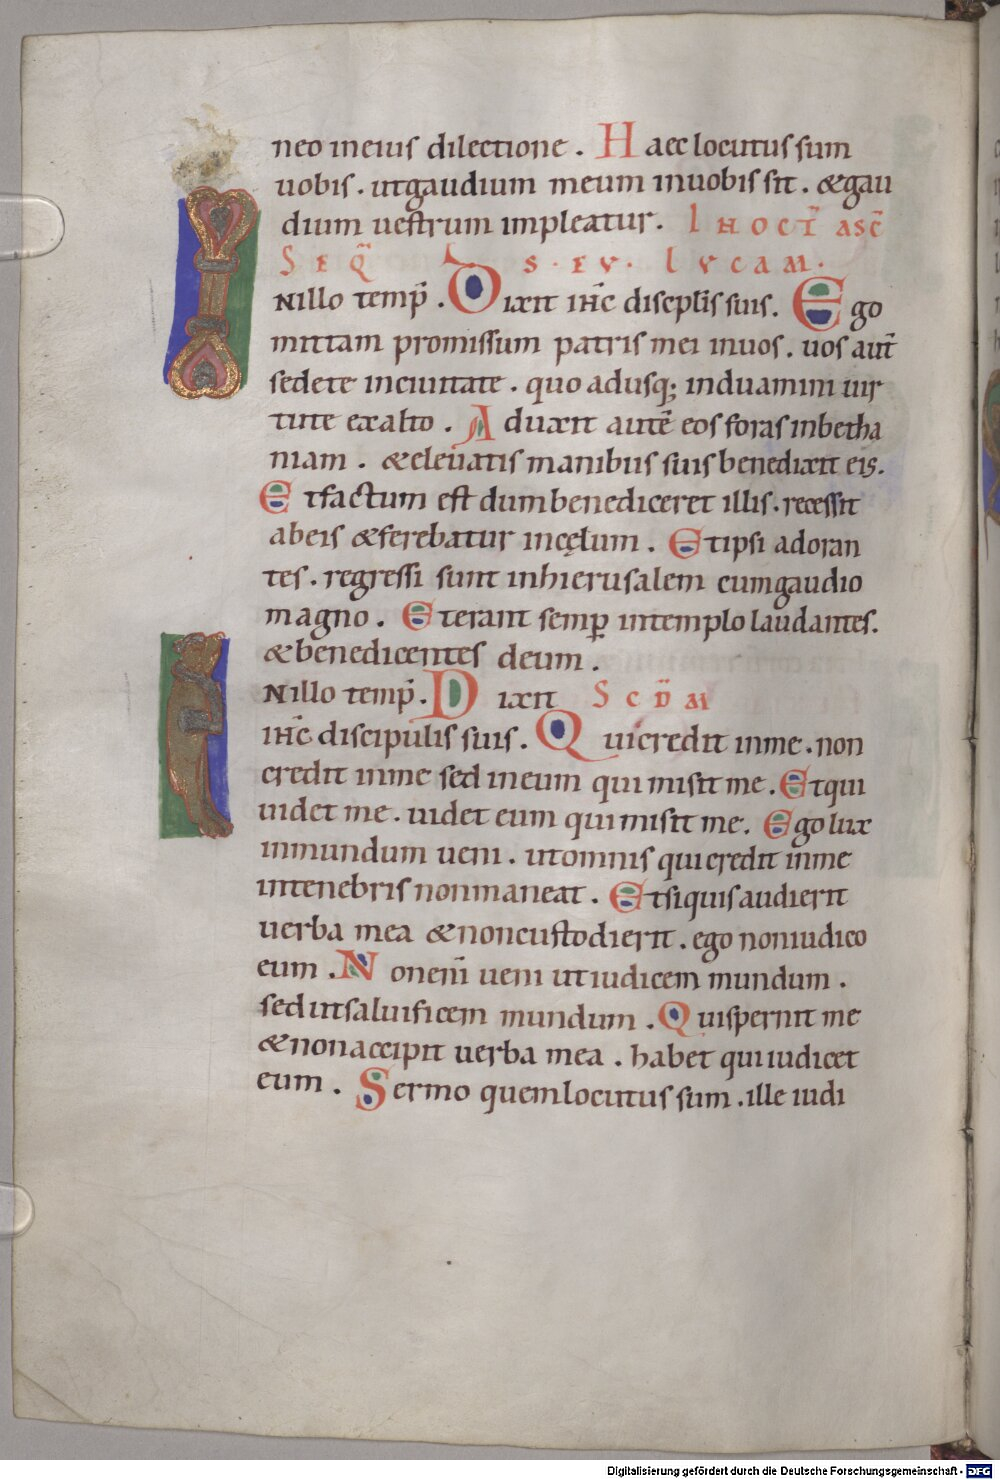 neo in eius dilectione. Haec locutus sum
uobis. ut gaudium meum inuobis sit. & gau
dium uestrum impleatur. IN OCT̄ ASC̄
SEQ̄ S. EV. LVCAM.
INillo temp̄. Dixit ih̄c discipl̄is suis. Ego
mittam promissum patris mei inuos. uos aut̄
sedete inciuitate. quo adusq; induamini uir
tute exalto. Aduxit autē eos foras inbetha
niam. & eleuatis manibus suis benedixit eis.
Et factum est dum benediceret illis. recessit
abeis & ferebatur incęlum. Et ipsi adoran
tes. regressi sunt inhierusalem cumgaudio
magno. Et erant semp̄ intemplo laudantes.
& benedicentes deum.
INillo temp̄. Dixit SCD̄M
ih̄c discipulis suis. Qui credit inme. non
credit inme sed ineum qui misit me. Et qui
uidet me. uidet eum qui misit me. Ego lux
inmundum ueni. ut omnis qui credit inme
intenebris non maneat. Et siquis audierit
uerba mea & non custodierit. ego non iudico
eum. Non eni̅ ueni ut iudicem mundum.
sed ut saluificem mundum. Qui spernit me
& non accipit uerba mea. habet qui iudicet
eum. Sermo quem locutus sum. ille iudi
Digitalisierung gefördert durch die Deutsche Forschungsgemeinschaft - DFG